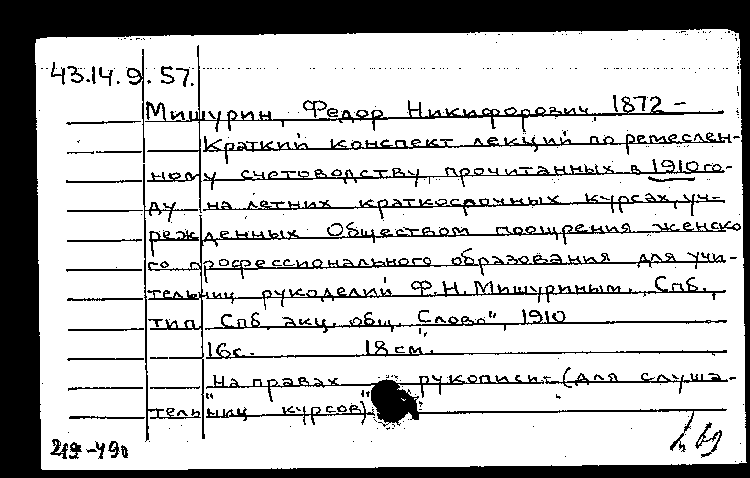 43.14.9.57.
Мишурин, Федор Никифорович, 1872 -
Краткий конспект лекций по ремеслен-
ному счетоводству прочитанных в 1910 го-
ду на летних краткосрочных курсах, уч-
режденных Обществом поощрения женско
го профессионального образования для учи-
тельниц рукоделий Ф.Н. Мишуриным. Спб.,
тип. Спб. акц. общ. „Слово", 1910
16 с. 18 см.
„На правах рукописи" (для слуша-
тельниц курсов)